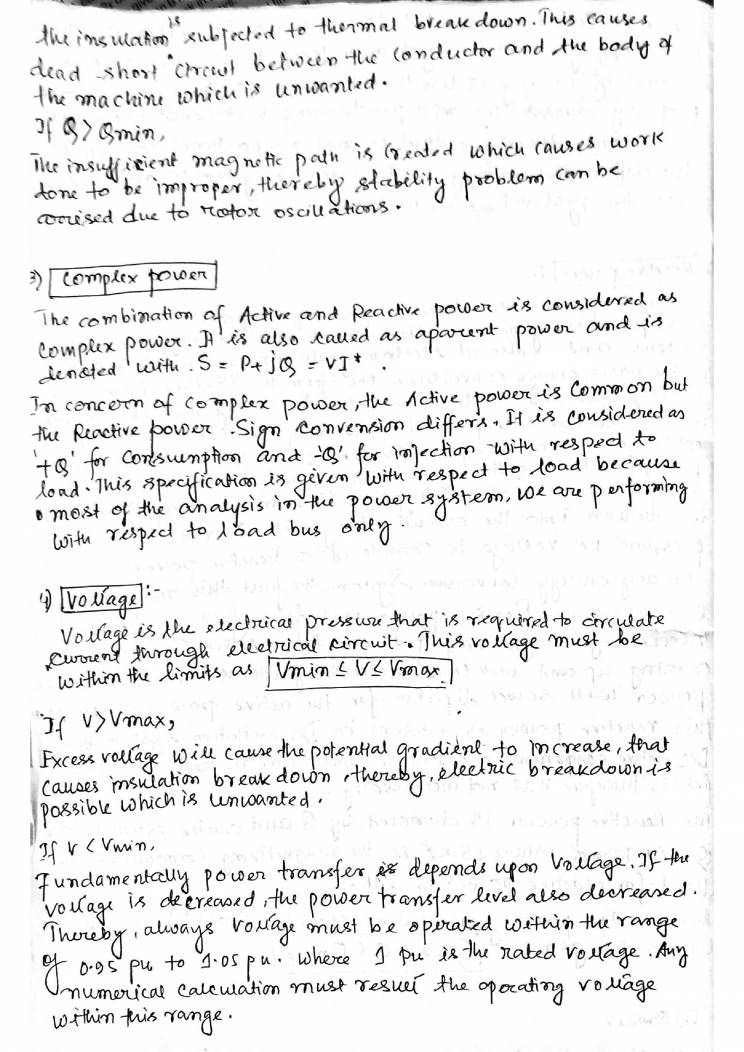 the insulation is subjected to thermal break down. This causes
dead short circuit between the conductor and the body of
the machine which is unwanted.
If Q > Qmin,
The insufficient magnetic path is created which causes work
done to be improper, thereby stability problem can be
arised due to rotor oscillations.
3) Complex power
The combination of Active and Reactive power is considered as
Complex power. It is also called as aparent power and is
denoted with. S = P+jQ = VI*.
In concern of complex power, the Active power is Common but
the Reactive power. Sign Convension differs. It is considered as
'+Q' for Consumption and '-Q' for injection with respect to
load. This specification is given with respect to load because
most of the analysis in the power system, we are performing
with respect to load bus only.
4) Voltage :-
Voltage is the electrical pressure that is required to circulate
current through electrical circuit. This voltage must be
within the limits as Vmin ≤ V ≤ Vmax
If V>Vmax,
Excess voltage will cause the potential gradient to increase, that
causes insulation break down, thereby, electric breakdown is
possible which is unwanted.
If V < Vmin,
Fundamentally power transfer is depends upon Voltage. If the
voltage is decreased, the power transfer level also decreased.
Thereby, always Voltage must be operated within the range
of 0.95 pu to 1.05 pu. where 1 pu is the rated voltage. Any
numerical calculation must result the operating voltage
within this range.